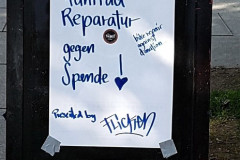 Fahrrad
Reparatur
gegen
Spende !
bike repair
against
donation
Presented by